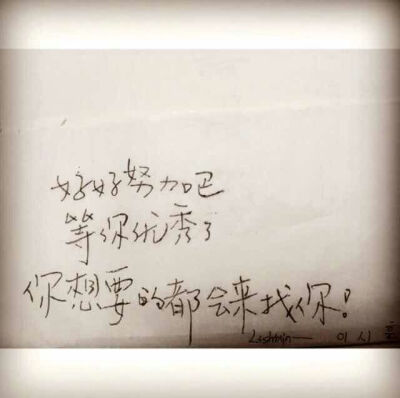 好好努力吧
等你优秀了
你想要的都会来找你!